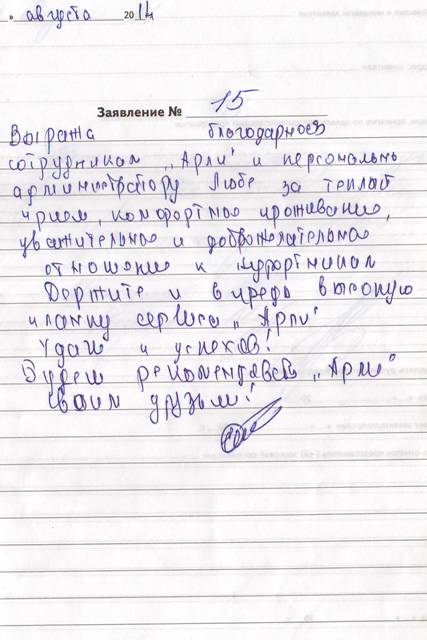 " августа 2014
Заявление № 15
Выража благодарность
сотрудникам „Арли" и персонально
администратору Любе за теплый
прием, комфортное проживание,
уважительное и доброжелательное
отношение к курортникам
Держите и впредь высокую
планку сервиса „Арли"
Удачи и успехов!
Будем рекомендовать „Арли"
своим друзьям!